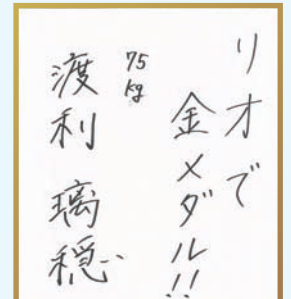 リオで
金メダル!!
75kg
渡利 璃穏